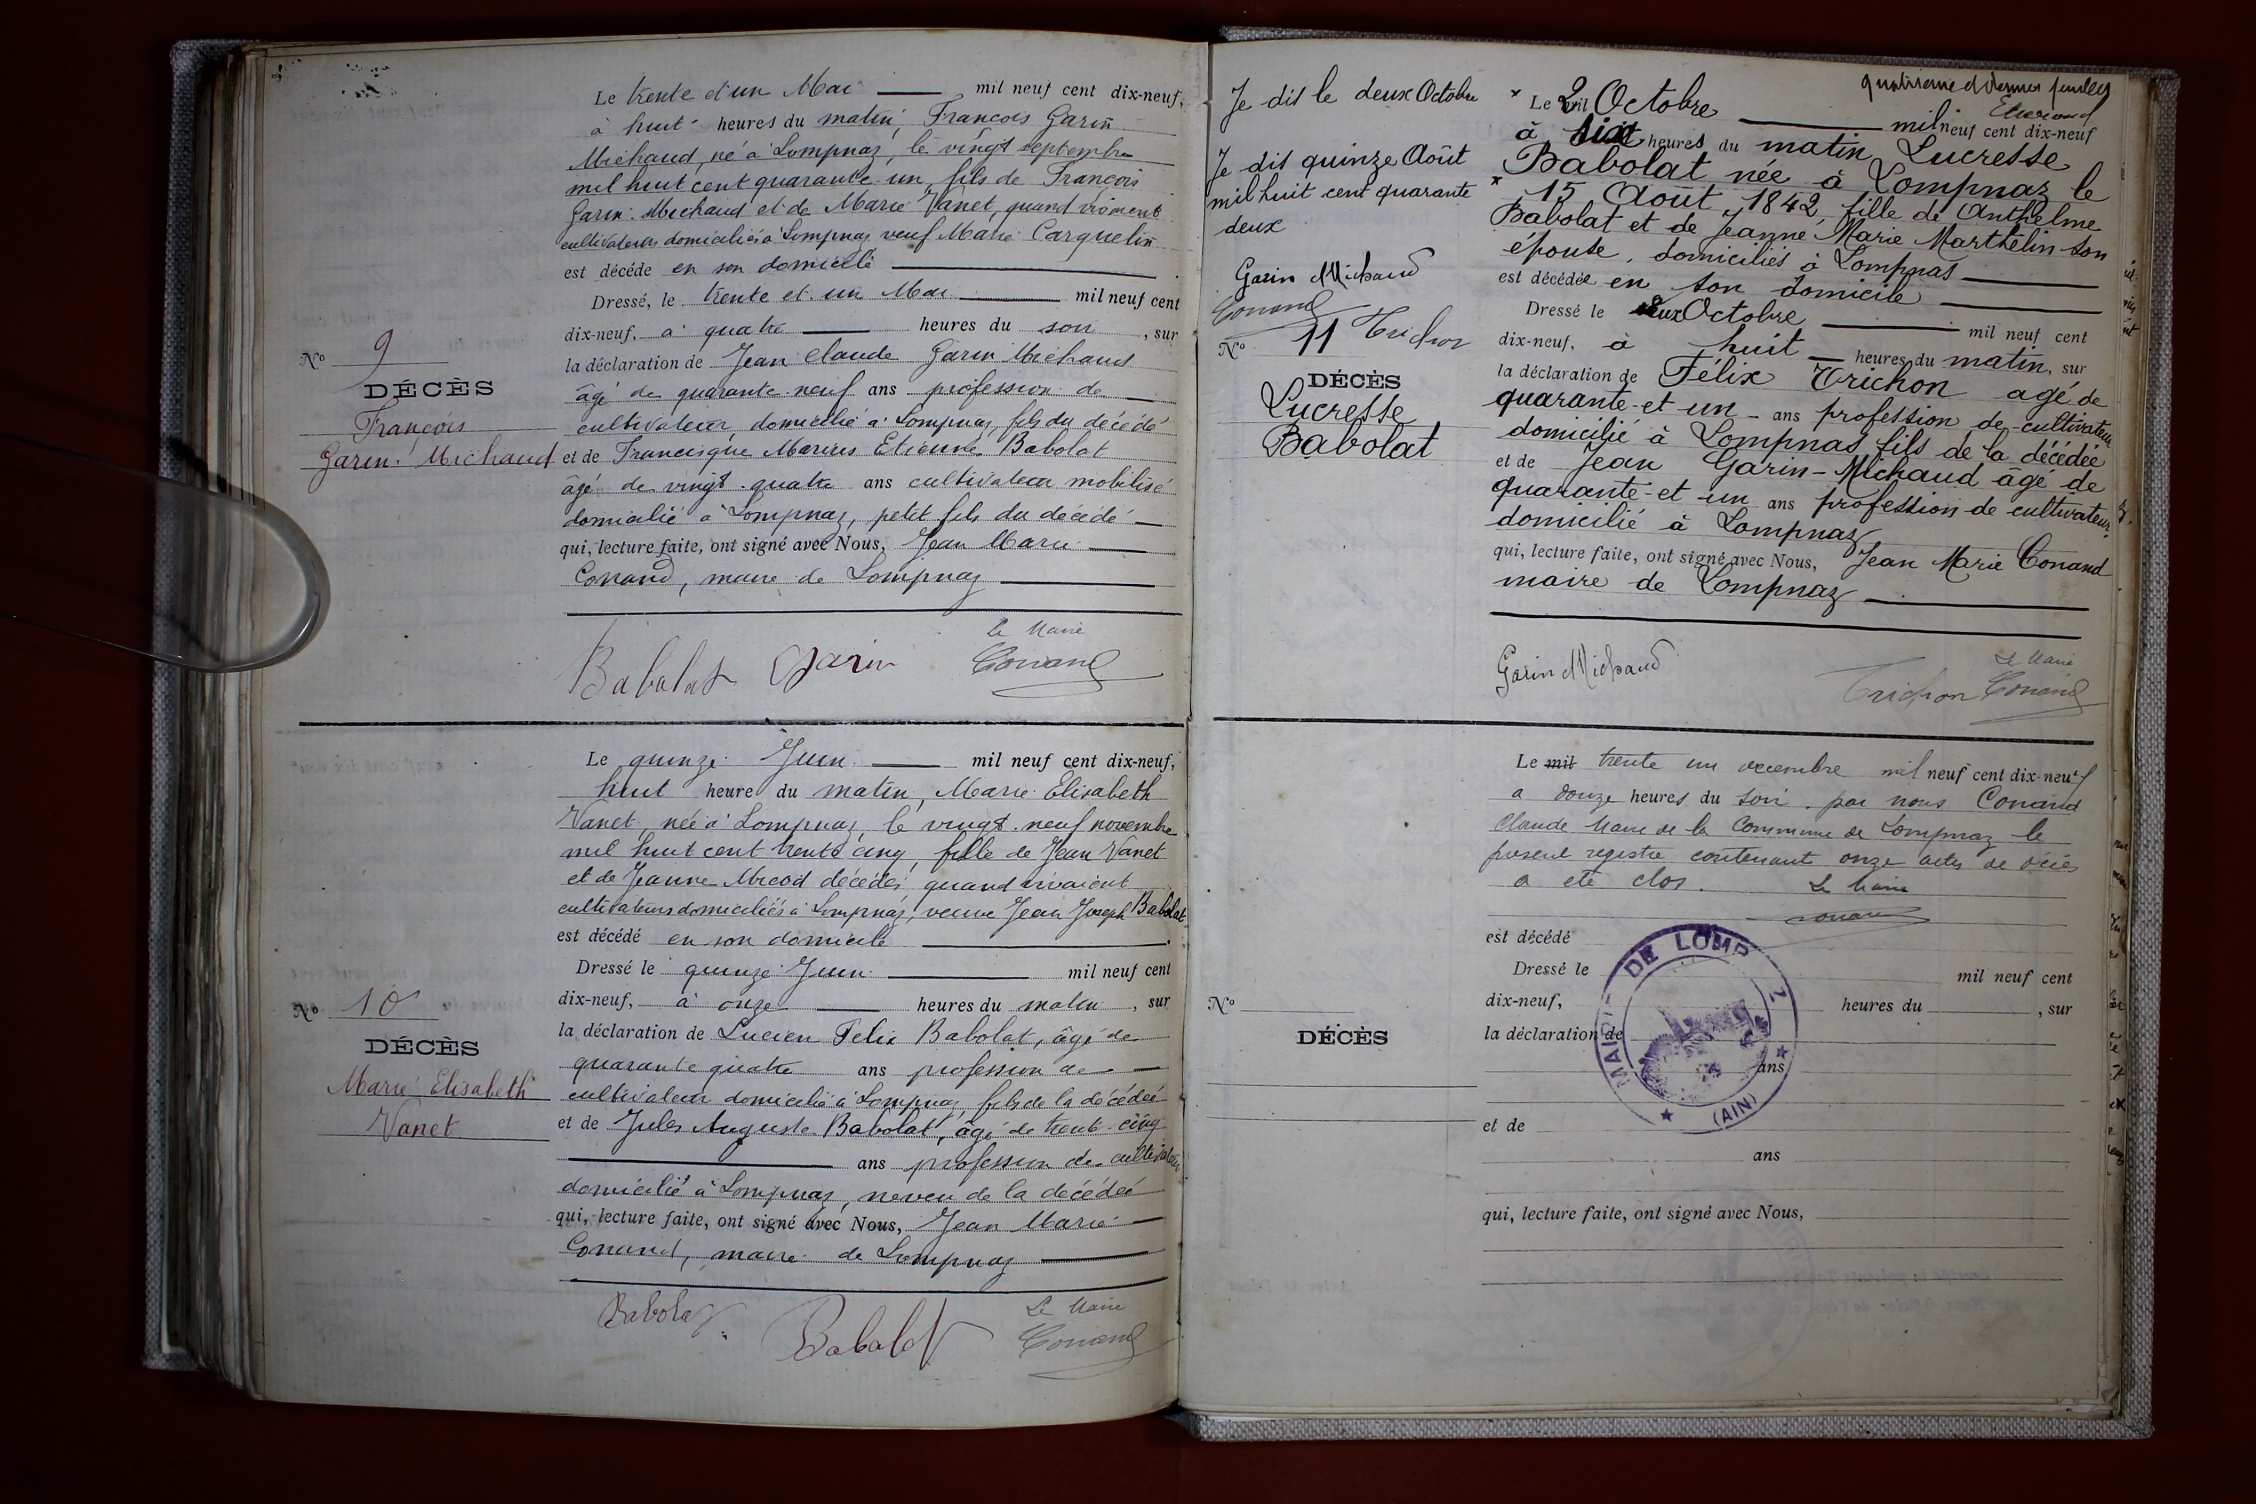 Le trente et un Mai mil neuf cent dix-neuf,
à huit heures du matin, François Garin
Michaud, né à Lompnaz, le vingt septembre
mil huit cent quarante-un, fils de François
Garin-Michaud et de Marie Vanet, quand vivoment
cultivateurs domiciliés à Lompnaz veuf Marie Carquelin
est décédé en son domicile
Dressé, le trente et un Mai mil neuf cent
dix-neuf, à quatre heures du soir, sur
la déclaration de Jean Claude Garin Michaud
âgé de quarante neuf ans profession de
cultivateur, domicilié à Lompnaz, fils du décédé
et de Francisque Marius Etienne Babolat
âgé de vingt-quatre ans cultivateur mobilisé
domicilié à Lompnaz, petit fils du décédé
qui, lecture faite, ont signé avec Nous, Jean Marie
Conand, maire de Lompnaz
N° 9
DÉCÈS
François
Garin-Michaud
Babolat Garin Le Maire
Conand
Le quinze Juin mil neuf cent dix-neuf,
huit heure du matin, Marie Elisabeth
Vanet, née à Lompnaz, le vingt-neuf novembre
mil huit cent trente cinq, fille de Jean Vanet
et de Jeanne décédés quand vivaient
cultivateurs domiciliés à Lompnaz, veuve Jean Joseph Babolat
est décédé en son domicile
Dressé le quinze Juin mil neuf cent
dix-neuf, à onze heures du matin, sur
la déclaration de Lucien Felix Babolat, âgé de
quarante quatre ans profession de
cultivateur domicilié à Lompnaz, fils de la décédée
et de Jules Auguste Babolat, âgé de trente-cinq
ans profession de cultivateur
domicilié à Lompnaz, neveu de la décédée
qui, lecture faite, ont signé avec Nous, Jean Marie
Conand, maire de Lompnaz
N° 10
DÉCÈS
Marie Elisabeth
Vanet
Babolat Babolat Le Maire
Conand
quatrième et dernier feuillet
Je dis le deux Octobre
Je dis quinze Août
mil huit cent quarante
deux
Garin Michaud
Conand
Trichon
N° 11
DÉCÈS
Lucresse
Babolat
* Le 2 Octobre mil neuf cent dix-neuf
à heures du matin Lucresse
Babolat née à Lompnaz le
* 15 Août 1842, fille de Anthelme
Babolat et de Jeanne Marie Marthelin son
épouse, domiciliés à Lompnas
est décédée en son domicile
Dressé le deux Octobre mil neuf cent
dix-neuf, à huit heures du matin, sur
la déclaration de Félix Trichon agé de
quarante-et-un ans profession de cultivateur
domicilié à Lompnas fils de la décédée
et de Jean Garin-Michaud âgé de
quarante-et-un ans profession de cultivateur
domicilié à Lompnaz
qui, lecture faite, ont signé avec Nous, Jean Marie Conand
maire de Lompnaz
Garin Michaud Trichon Le Maire
Conand
Le mil trente un decembre mil neuf cent dix-neuf
a douze heures du soir. par nous Conand
Claude Maire de la Commune de Lompnaz le
present registre contenant onze actes de décès
a eté clos. Le Maire
Conand
est décédé
Dressé le mil neuf cent
dix-neuf, heures du , sur
la déclaration de
ans
et de
ans
qui, lecture faite, ont signé avec Nous,
N°
DÉCÈS
MAIRIE DE LOMP Z
(AIN)